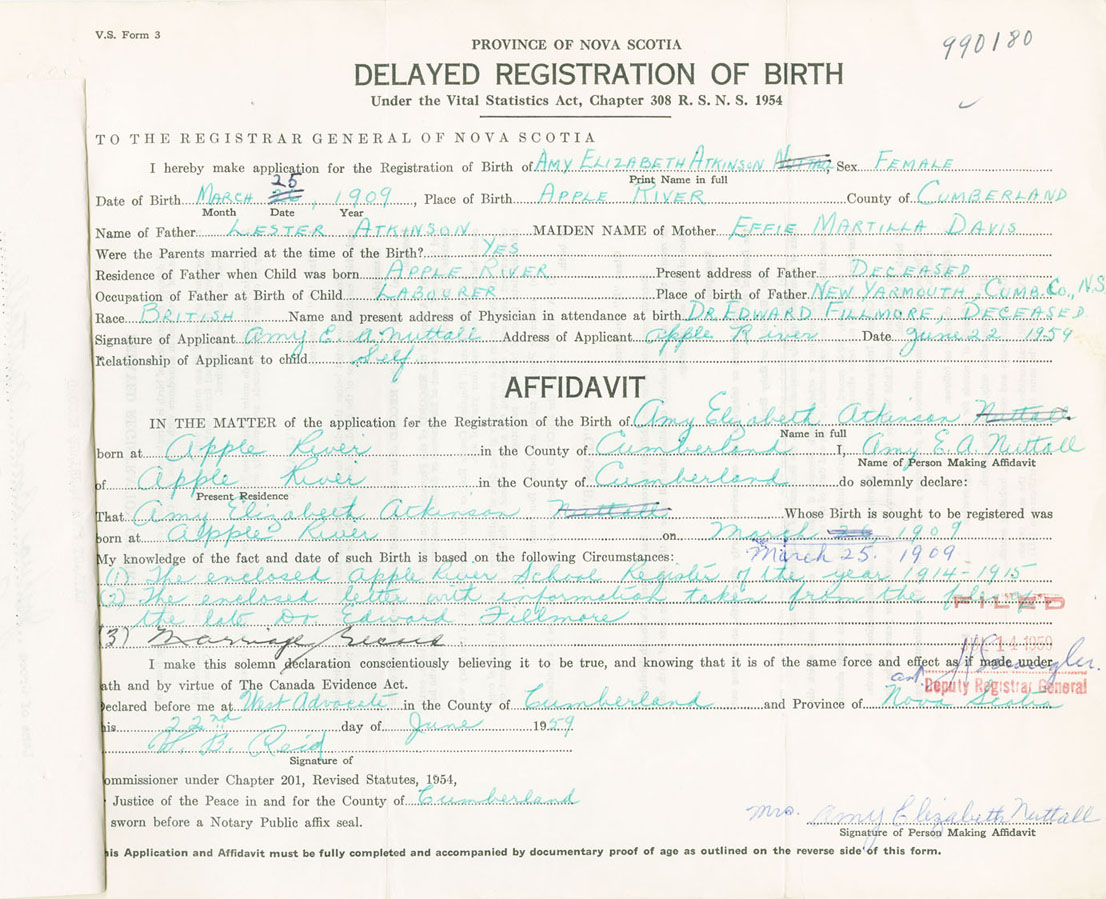 V.S. Form 3
990180
PROVINCE OF NOVA SCOTIA
DELAYED REGISTRATION OF BIRTH
Under the Vital Statistics Act, Chapter 308 R. S. N. S. 1954
TO THE REGISTRAR GENERAL OF NOVA SCOTIA
I hereby make application for the Registration of Birth of AMY ELIZABETH ATKINSON NUTTALL, Sex FEMALE
Print Name in full
Date of Birth MARCH 25, 1909, Place of Birth APPLE RIVER County of CUMBERLAND
Month Date Year
Name of Father LESTER ATKINSON MAIDEN NAME of Mother EFFIE MARTILLA DAVIS
Were the Parents married at the time of the Birth? YES
Residence of Father when Child was born APPLE RIVER Present address of Father DECEASED
Occupation of Father at Birth of Child LABOURER Place of birth of Father NEW YARMOUTH, CUMB. Co., N.S
Race BRITISH Name and present address of Physician in attendance at birth DR EDWARD FILLMORE, DECEASED
Signature of Applicant Amy E. A. Nuttall Address of Applicant Apple River Date June 22 1959
Relationship of Applicant to child Self
AFFIDAVIT
IN THE MATTER of the application for the Registration of the Birth of Amy Elizabeth Atkinson Nuttall
Name in full
born at Apple River in the County of Cumberland I, Amy E. A. Nuttall
Name of Person Making Affidavit
of Apple River in the County of Cumberland do solemnly declare:
Present Residence
That Amy Elizabeth Atkinson Nuttall Whose Birth is sought to be registered was
born at Apple River on March 26, 1909
March 25. 1909
My knowledge of the fact and date of such Birth is based on the following Circumstances:
(1) The enclosed Apple River School Register of the year 1914-1915
(2) The enclosed letter with information taken from the files of
the late Dr Edward Fillmore
FILED
(3) Marriage Record
14 1959
I make this solemn declaration conscientiously believing it to be true, and knowing that it is of the same force and effect as if made under
ath and by virtue of The Canada Evidence Act.
Deputy Registrar General
eclared before me at West Advocate in the County of Cumberland and Province of Nova Scotia
his 22nd day of June 1959
H. B. Reid
Signature of
ommissioner under Chapter 201, Revised Statutes, 1954,
Justice of the Peace in and for the County of Cumberland
sworn before a Notary Public affix seal.
Mrs. Amy Elizabeth Nuttall
Signature of Person Making Affidavit
his Application and Affidavit must be fully completed and accompanied by documentary proof of age as outlined on the reverse side of this form.